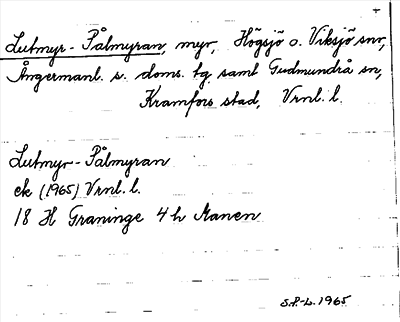 Lutmyr-Pålmyran, myr, Högsjö o. Viksjö snr,
Ångermanl. s. doms. tg, samt Gudmundrå sn,
Kramfors stad, Vrnl. l.
Lutmyr-Pålmyran
ek (1965) Vrnl. l.
18 H Graninge 4 h Manen
S.P-L. 1965